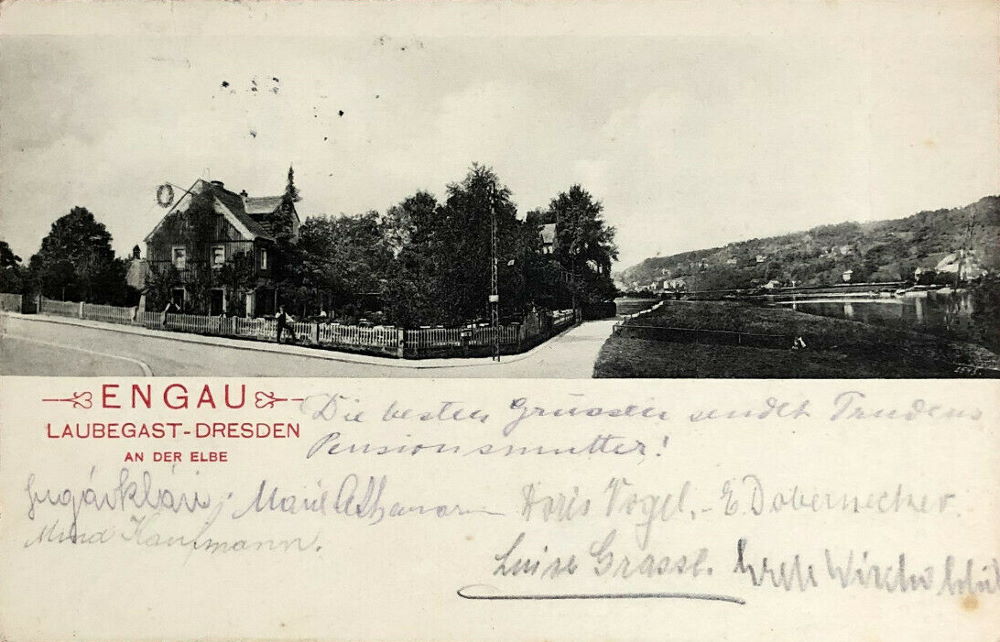 ENGAU
LAUBEGAST-DRESDEN
AN DER ELBE
Die besten Grüssen sendet Trudens
Pensionsmutter!
Marie
Doris Vogel. - E. Dobernecker.
Kaufmann.
Luise Grassl.